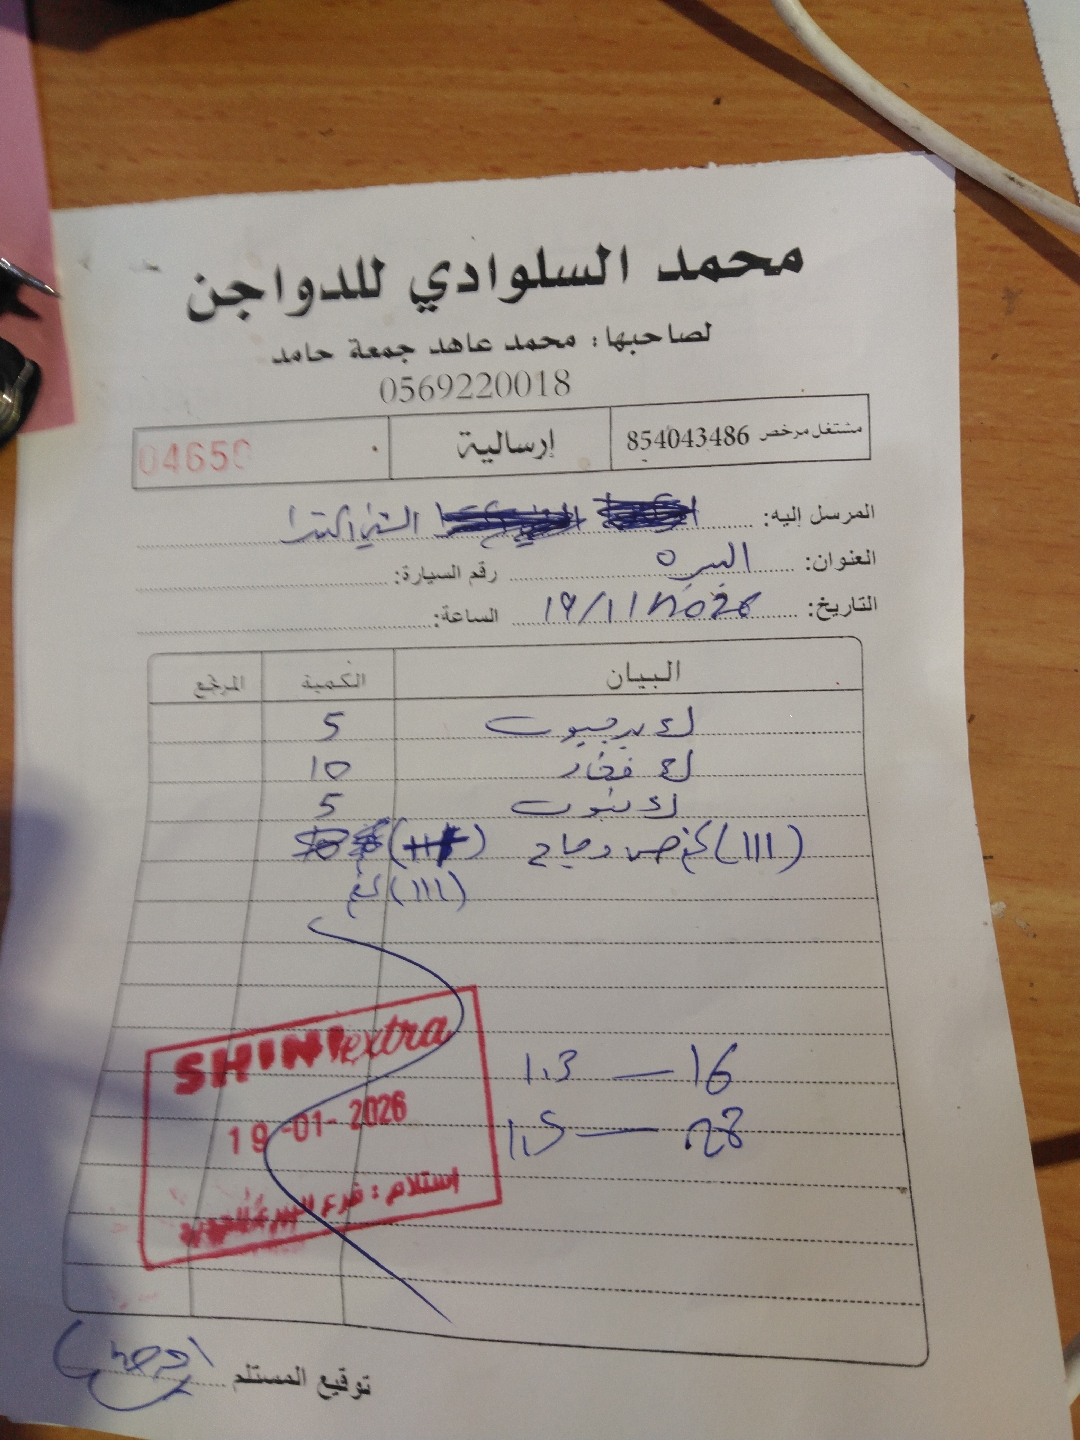 محمد السلوادي للدواجن
لصاحبها: محمد عاهد جمعة حامد
0569220018
مشتغل مرخص 854043486 إرسالية 04650
المرسل اليه: الشني اكسترا
العنوان: البيره رقم السيارة:
التاريخ: 19/1/2026 الساعة:
البيان الكمية المرتجع
5
10
5
(111) كغم دجاج
(111) كغم
SHINI extra
1.3 — 16
19-01-2026
1.5 — 28
استلام: فرع
توقيع المستلم